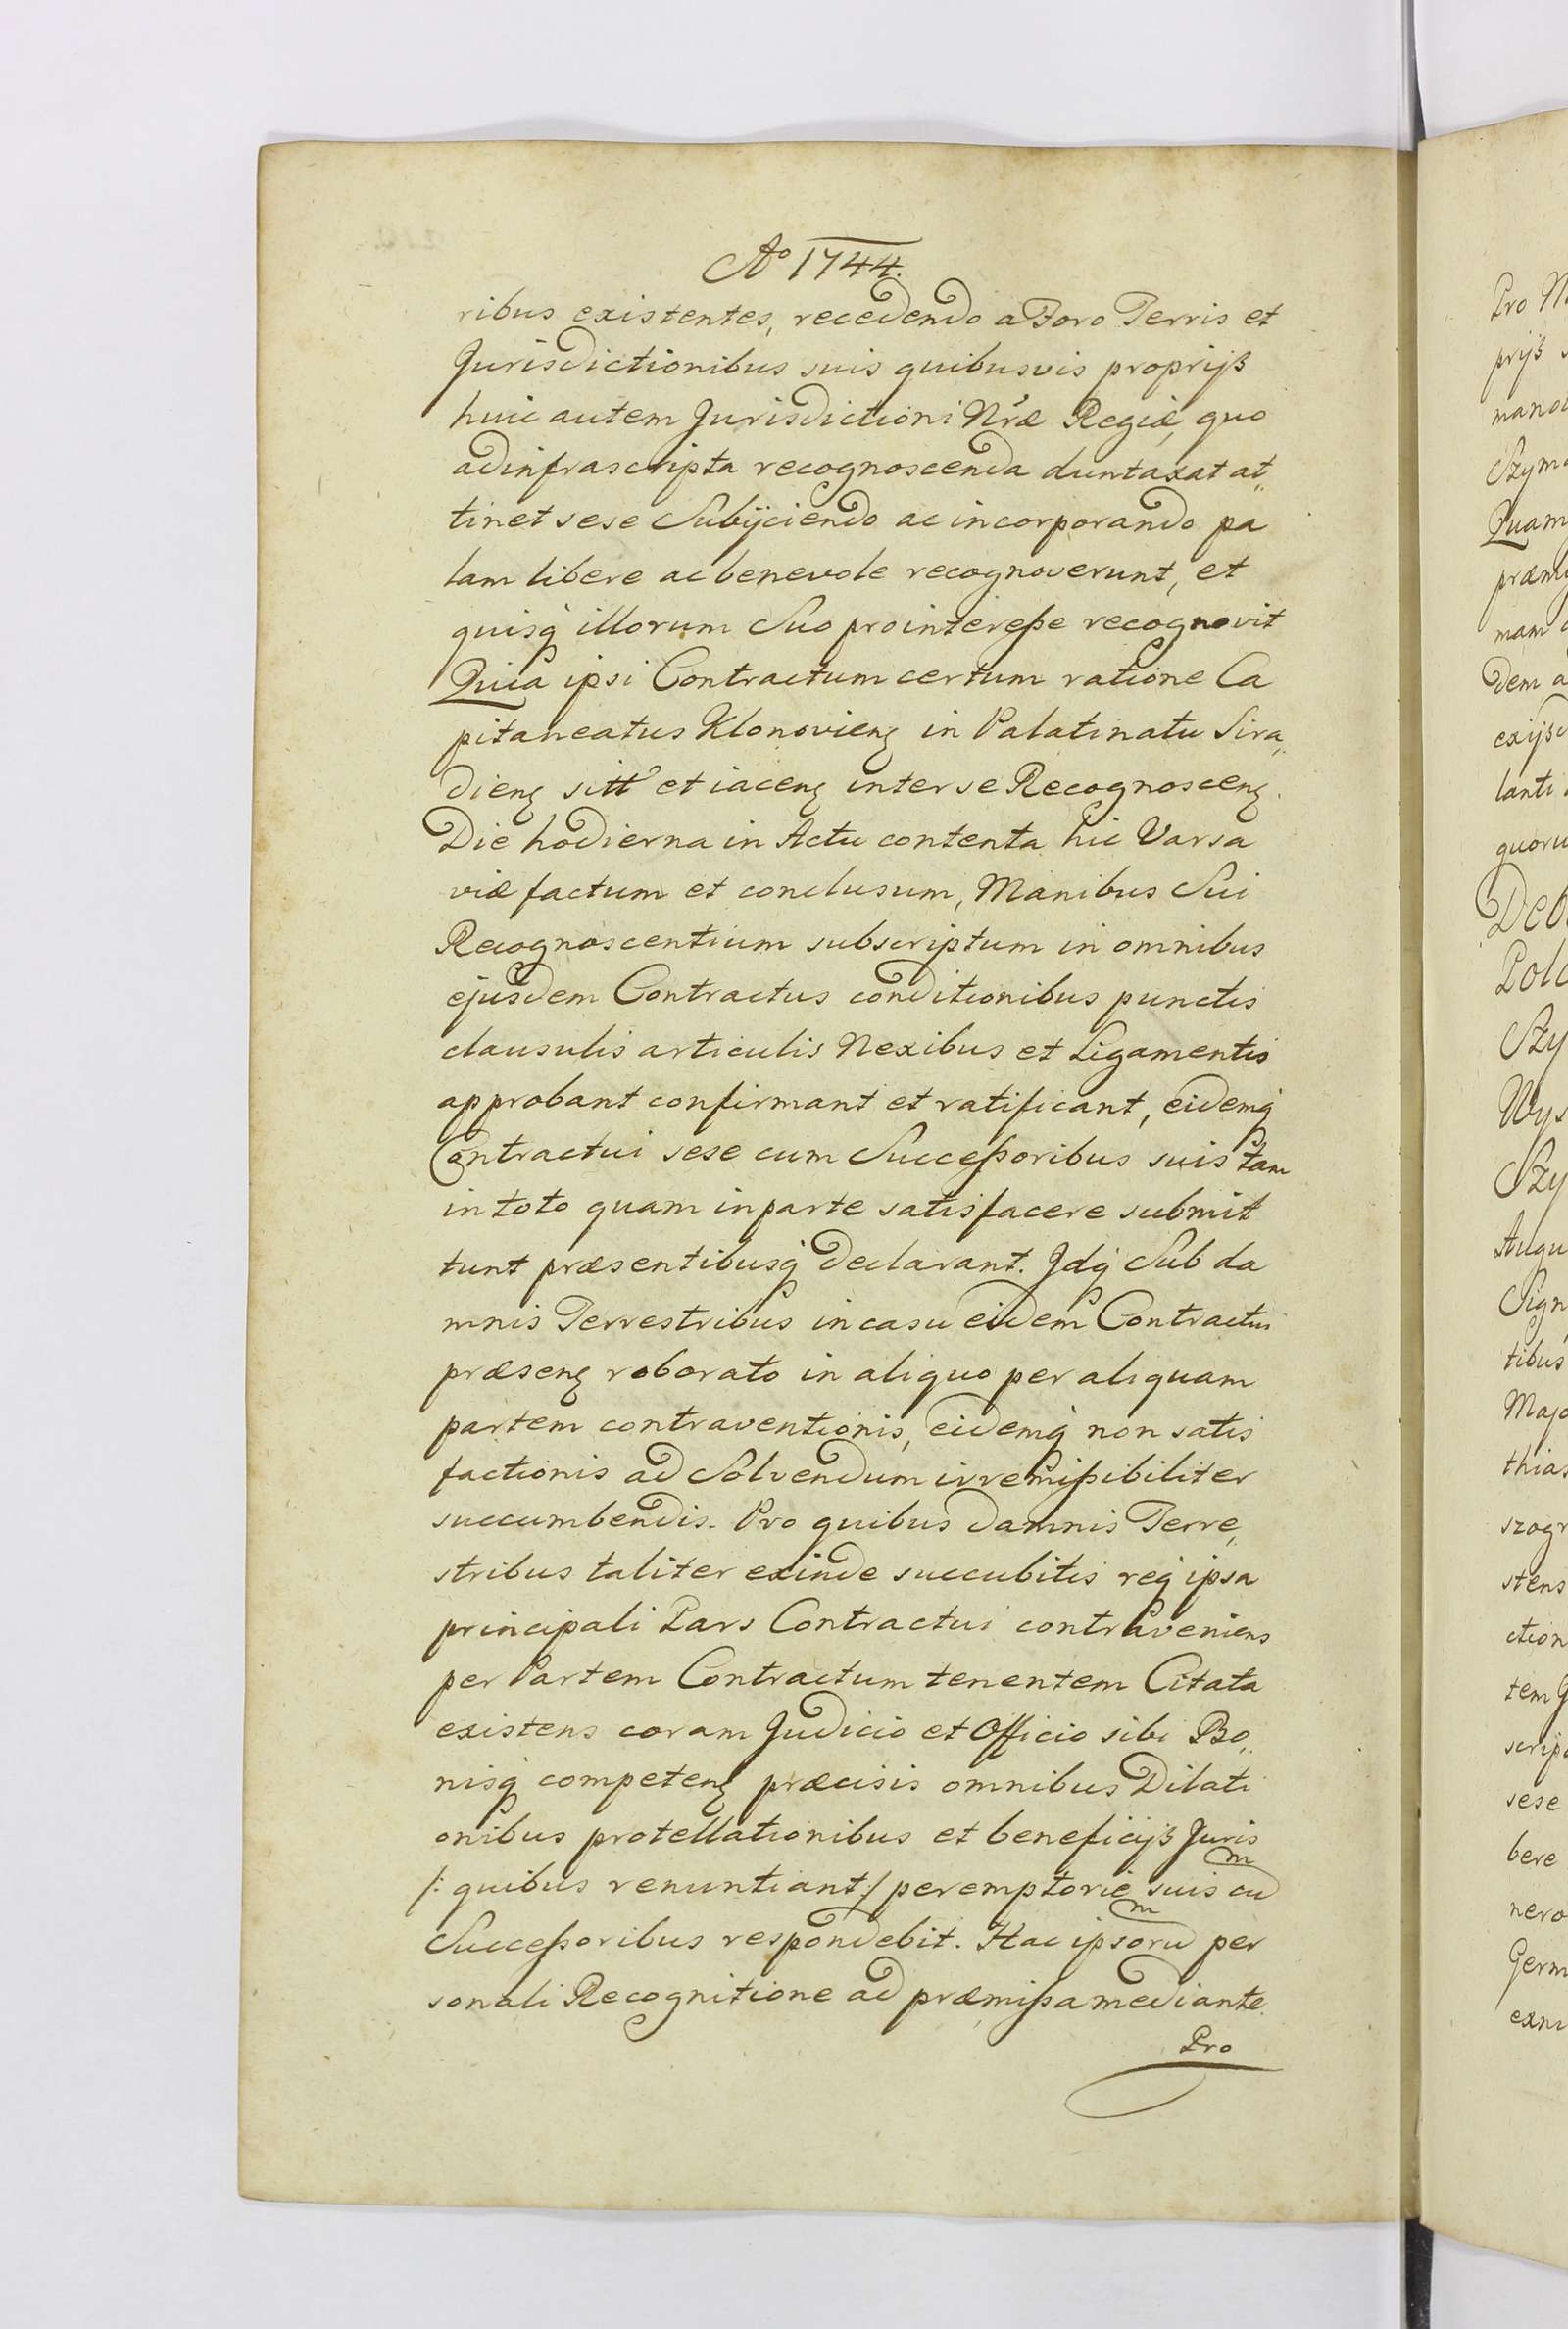 Aº 1744.
ribus existentes, recedendo a Foro Terris et
Jurisdictionibus suis quibusvis proprijs
huic autem Jurisdictioni Nr̃æ Regiæ, quo
ad infrascripta recognoscenda duntaxat at„
tinet sese Subijciendo ac incorporando pa
lam libere ac benevole recognoverunt, et
quisq́ illorum Suo pro interesse recognovit
Quia ipsi Contractum certum ratione Ca
pitaneatus Klonovieñ in Palatinatu Sira„
dieñ sitt̃ et iaceñ inter se Recognosceñ.
Die hodierna in Actu contenta hic Varsa
viæ factum et conclusum, Manibus Sui
Recognoscentium subscriptum in omnibus
ejusdem Contractus conditionibus punctis
clausulis articulis Nexibus et Ligamentis
approbant confirmant et ratificant, eidemq́
Contractui sese cum Successoribus suis tam
in toto quam in parte satisfacere submit
tunt præsentibusq́ declarant. Idq́ Sub da
mnis Terrestribus in casu eidem Contractui
præseñ roborato in aliquo per aliquam
partem contraventionis, eidemq́ non satis
factionis ad Solvendum irremissibiliter
succumbendis. Pro quibus damnis Terre„
stribus taliter exinde succubitis req́ ipsa
principali Pars Contractui contraveniens
per Partem Contractum tenentem Citata
existens coram Judicio et Officio sibi Bo„
nisq́ competeñ præcisis omnibus Dilati
onibus protellationibus et beneficijs Juris
/: quibus renuntiant :/ peremptorie suis cum
Successoribus respondebit. Hac ipsorum per
sonali Recognitione ad præmissa mediante.
Pro